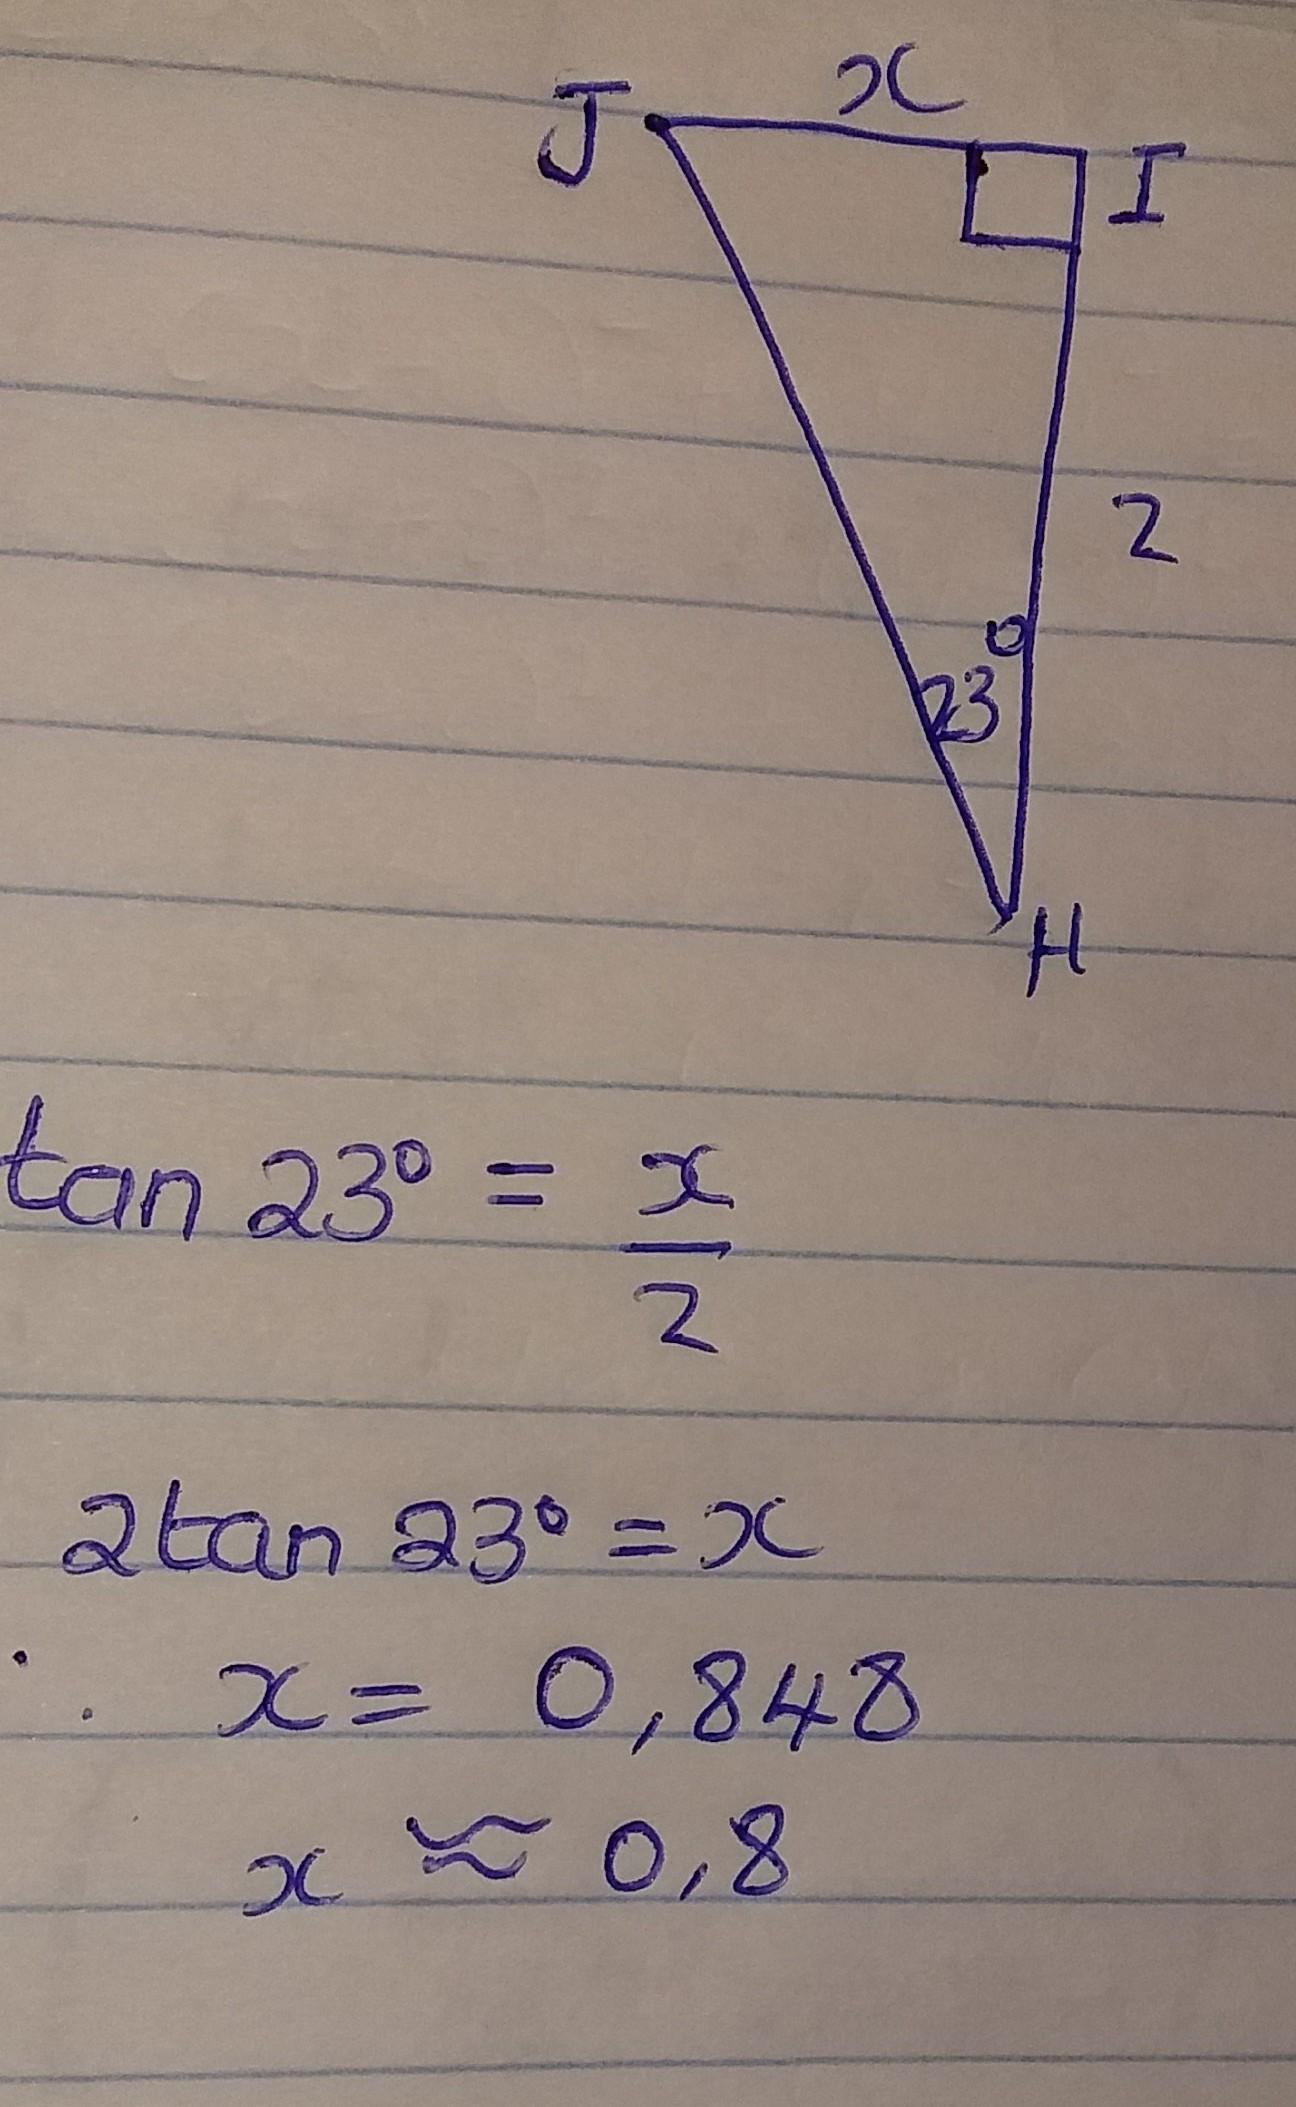 x
J
I
2
23°
H
tan 23° = x/2
2tan 23° = x
∴ x = 0,848
x ≈ 0,8